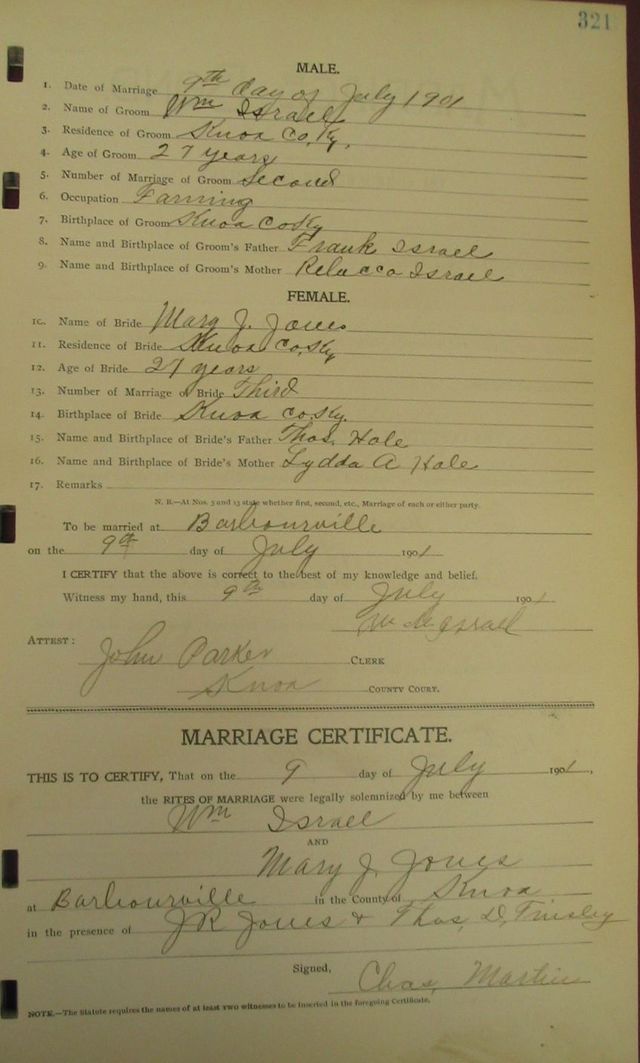 321
MALE.
1. Date of Marriage 9th day of July 1901
2. Name of Groom Wm Israel
3. Residence of Groom Knox Co, Ky,
4. Age of Groom 27 years
5. Number of Marriage of Groom Second
6. Occupation Farming
7. Birthplace of Groom Knox Co Ky
8. Name and Birthplace of Groom's Father Frank Israel
9. Name and Birthplace of Groom's Mother Rebacca Israel
FEMALE.
10. Name of Bride Mary J. Jones
11. Residence of Bride Knox Co, Ky,
12. Age of Bride 27 years
13. Number of Marriage of Bride Third
14. Birthplace of Bride Knox Co, Ky.
15. Name and Birthplace of Bride's Father Thos. Hale
16. Name and Birthplace of Bride's Mother Lydda A Hale
17. Remarks
N. B.—At Nos. 5 and 13 state whether first, second, etc., Marriage of each or either party.
To be married at Barbourville
on the 9th day of July 1901
I CERTIFY that the above is correct to the best of my knowledge and belief.
Witness my hand, this 9th day of July 1901
Israel
ATTEST: John Parker CLERK
Knox COUNTY COURT.
MARRIAGE CERTIFICATE.
THIS IS TO CERTIFY, That on the 9 day of July 1901,
the RITES OF MARRIAGE were legally solemnized by me between
Wm Israel
AND
Mary J. Jones
at Barbourville in the County of Knox
in the presence of JR Jones & Thos, D, Tinsley
Signed, Chas, Martin
NOTE.—The Statute requires the names of at least two witnesses to be inserted in the foregoing Certificate.